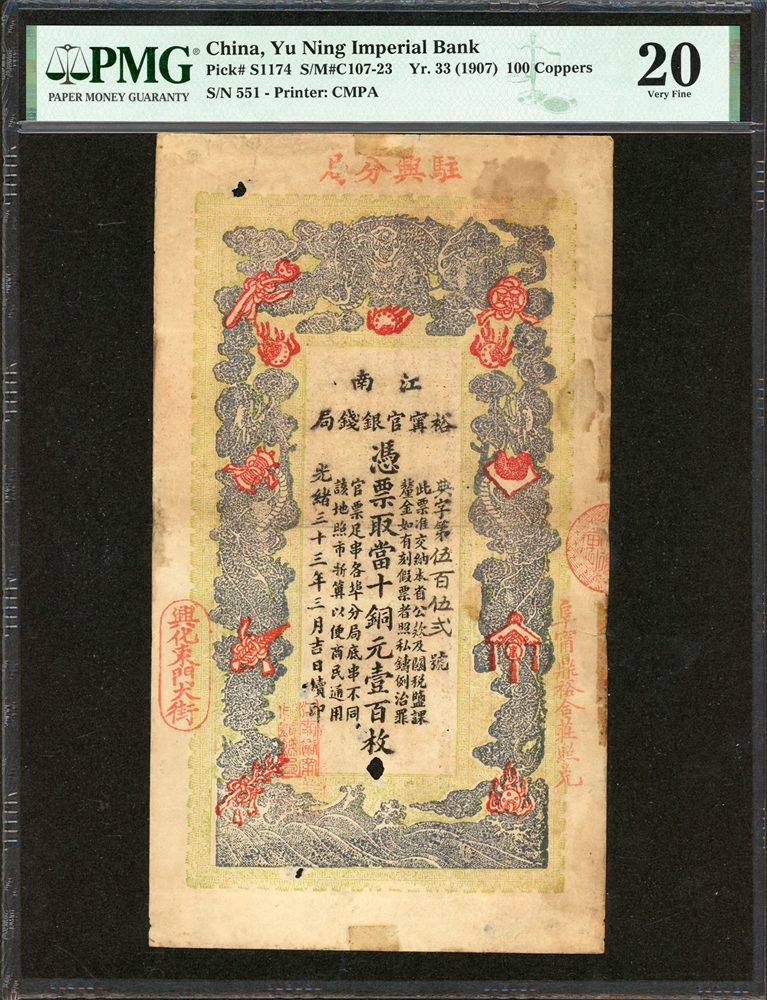 PMG
PAPER MONEY GUARANTY
China, Yu Ning Imperial Bank
Pick# S1174 S/M#C107-23 Yr. 33 (1907) 100 Coppers
S/N 551 - Printer: CMPA
20
Very Fine
駐興分局
江南
裕甯官銀錢局
字第伍百伍弍號
此票准交納本省公欵及關稅鹽課
釐金如有刻假票者照私鑄例治罪
憑票取當十銅元壹百枚
官票足串各埠分局底串不同
該地照市折算以便商民通用
光緒三十三年三月吉日續印
阜甯鼎裕莊照兌
興化東門大街